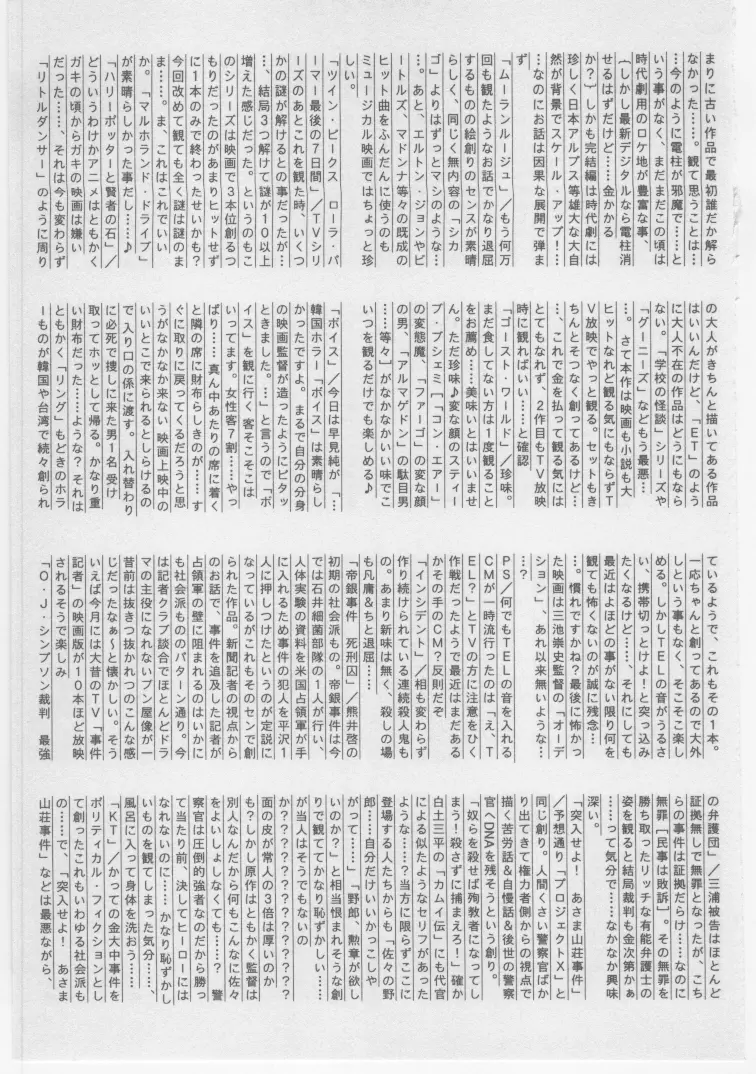 まりに古い作品で最初誰だか解ら
なかった……。観て思うことは…
…今のように電柱が邪魔で……と
いう事がなく、まだまだこの頃は
時代劇用のロケ地が豊富な事、
{しかし最新デジタルなら電柱消
せるはずだけど……金かかる
か?}しかも完結編は時代劇には
珍しく日本アルプス等雄大な大自
然が背景でスケール・アップ!…
…なのにお話は因果な展開で弾ま
ず
「ムーランルージュ」/もう何万
回も観たようなお話でかなり退屈
するものの絵創りのセンスが素晴
らしく、同じく無内容の「シカ
ゴ」よりはずっとマシのような…
…。あと、エルトン・ジョンやビ
ートルズ、マドンナ等々の既成の
ヒット曲をふんだんに使うのも
ミュージカル映画ではちょっと珍
しい。
「ツイン・ピークス　ローラ・パ
ーマー最後の7日間」/TVシリ
ーズのあとこれを観た時、いくつ
かの謎が解けるとの事だったが…
…、結局3つ解けて謎が10以上
増えた感じだった。というのもこ
のシリーズは映画で3本位創るつ
もりだったのがあまりヒットせず
に1本のみで終わったせいかも?
今回改めて観ても全く謎は謎のま
ま……。ま、これはこれでいい
か。「マルホランド・ドライブ」
が素晴らしかった事だし……♪
「ハリーポッターと賢者の石」/
どういうわけかアニメはともかく
ガキの頃からガキの映画は嫌い
だった……、それは今も変わらず
「リトルダンサー」のように周り
の大人がきちんと描いてある作品
はいいんだけど、「ET」のよう
に大人不在の作品はどうにもなら
ない。「学校の怪談」シリーズや
「グーニーズ」などもう最悪…
…。さて本作は映画も小説も大
ヒットなれど観る気にもならずT
V放映でやっと観る。セットもき
ちんとそつなく創ってあるけど…
…、これで金を払って観る気には
とてもなれず、2作目もTV放映
時に観ればいい……と確認
「ゴースト・ワールド」/珍味。
まだ食してない方は1度観ること
をお薦め……美味いとはいいませ
ん。ただ珍味♪変な顔のスティー
ブ・ブシェミ[「コン・エアー」
の変態魔、「ファーゴ」の変な顔
の男、「アルマゲドン」の駄目男
……等々]がなかなかいい味でこ
いつを観るだけでも楽しめる♪
「ボイス」/今日は早見純が「…
韓国ホラー「ボイス」は素晴らし
かったですよ。まるで自分の分身
の映画監督が造ったようにピタッ
ときました。…」と言うので「ボ
イス」を観に行く客そこそこは
いってます。女性客7割……やっ
ぱり……真ん中あたりの席に着く
と隣の席に財布らしきのが……す
ぐに取りに戻ってくるだろうと思
うがなかなか来ない　映画上映中の
いいとこで来られるとしらけるの
で入り口の係に渡す。入れ替わり
に必死で捜しに来た男1名受け
取ってホッとして帰る。かなり重
い財布だった……ような?それは
ともかく「リング」もどきのホラ
ーものが韓国や台湾で続々創られ
ているようで、これもその1本。
一応ちゃんと創ってあるので大外
しという事もなく、そこそこ楽し
める。しかしTELの音がうるさ
い、携帯切っとけよ!と突っ込み
たくなるけど……、それにしても
最近はよほどの事がない限り何を
観ても怖くないのが誠に残念…
…。慣れですかね?最後に怖かっ
た映画は三池崇史監督の「オーデ
ション」、あれ以来無いような…
…?
PS/何でもTELの音を入れる
CMが一時流行ったのは「え、T
EL?」とTVの方に注意をひく
作戦だったようで最近はまだある
かその手のCM?反則だぞ
「インシデント」/相も変わらず
作り続けられている連続殺人鬼も
の。あまり新味は無く、殺しの場
も凡庸&ちと退屈……
「帝銀事件　死刑囚」/熊井啓の
初期の社会派もの。帝銀事件は今
では石井細菌部隊の1人が行い、
人体実験の資料を米国占領軍が手
に入れるため事件の犯人を平沢1
人に押しつけたというのが定説に
なっているがこれもそのセンで創
られた作品。新聞記者の視点から
のお話で、事件を追及した記者が
占領軍の壁に阻まれるのはいかに
も社会派もののパターン通り。今
は記者クラブ談合でほとんどドラ
マの主役になれないブン屋像が一
昔前は抜きつ抜かれつのこんな感
じだったなぁ〜と懐かしい。そう
いえば今月には大昔のTV「事件
記者」の映画版が10本ほど放映
されるそうで楽しみ
「O・J・シンプソン裁判　最強
の弁護団」/三浦被告はほとんど
証拠無しで無罪となったが、こち
らの事件は証拠だらけ……なのに
無罪[民事は敗訴]。その無罪を
勝ち取ったリッチな有能弁護士の
姿を観ると結局裁判も金次第かぁ
……って気分で……なかなか興味
深い。
「突入せよ!　あさま山荘事件」
/予想通り「プロジェクトX」と
同じ創り。人間くさい警察官ばか
り出てきて権力者側からの視点で
描く苦労話&自慢話&後世の警察
官へDNAを残そうという創り。
「奴らを殺せば殉教者になってし
まう!殺さずに捕まえろ!」確か
白土三平の「カムイ伝」にも代官
による似たようなセリフがあった
ような……?当方に限らずここに
登場する人たちからも「佐々の野
郎……自分だけいいかっこしや
がって……」「野郎、勲章が欲し
いのか?」と相当恨まれそうな創
りで観ててかなり恥ずかしい……
が当人はそうでもないの
か????????????????
面の皮が常人の3倍は厚いのか
も?しかし原作はともかく監督は
別人なんだから何もこんなに佐々
をよいしょしなくても……?　警
察官は圧倒的強者なのだから勝っ
て当たり前、決してヒーローには
なれないのに……かなり恥ずかし
いものを観てしまった気分……、
風呂に入って身体を洗おう……
「KT」/かっての金大中事件を
ポリティカル・フィクションとし
て創ったこれもいわゆる社会派も
の……で、「突入せよ!　あさま
山荘事件」などは最悪ながら、